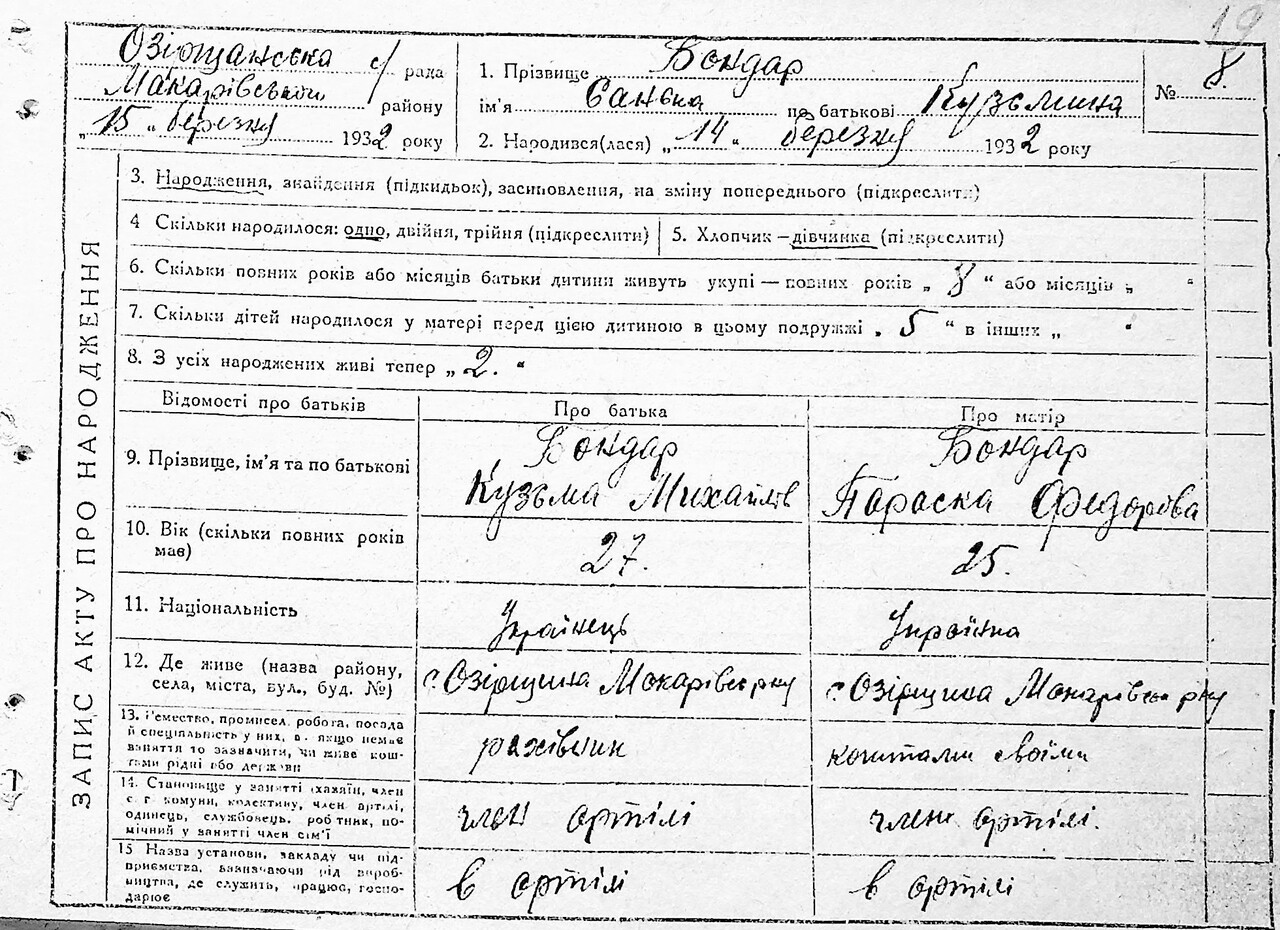 19
Озірщанська с/рада
Макарівськой району
„15„ березня 1932 року
1. Прізвище Бондар
ім'я Санька по батькові Кузьмина
2. Народився(лася) „14„ березня 1932 року
№ 8.
3. Народження, знайдення (підкидьок), засиновлення, на зміну попереднього (підкреслити)
4 Скільки народилося: одно, двійня, трійня (підкреслити)
5. Хлопчик – дівчинка (підкреслити)
6. Скільки повних років або місяців батьки дитини живуть укупі — повних років „ 8 “ або місяців „ “
7. Скільки дітей народилося у матері перед цією дитиною в цьому подружжі „ 5 “ в інших „ “
8. З усіх народжених живі тепер „ 2. “
ЗАПИС АКТУ ПРО НАРОДЖЕННЯ
Відомості про батьків
Про батька
Про матір
9. Прізвище, ім'я та по батькові
Бондар
Кузьма Михайлів
Бондар
Параска Федорівa
10. Вік (скільки повних років
має)
27.
25.
11. Національність
Українець
Українка
12. Де живе (назва району,
села, міста, вул., буд. №)
с. Озірщина Макарівськ рну
с. Озірщина Макарівськ рну
13. Ремество, промисел, робота, посада
й спеціяльність у них, а якщо немає
заняття то зазначити, чи живе кош-
тами рідні або держави
рахівник
коштами своїми
14. Становище у занятті (хазяїн, член
с. г. комуни, колективу, член артілі,
одинець, службовець, робітник, по-
мічний у занятті член сім'ї
член артілі
член артілі.
15 Назва установи, закладу чи під-
приємства, зазначаючи рід вироб-
ництва, де служить, працює, госпо-
дарює
в артілі
в артілі